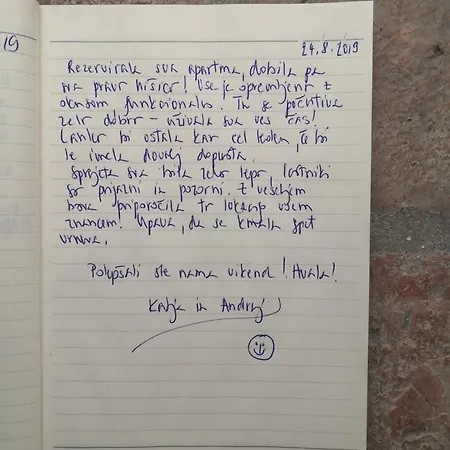 19
24.8.2019
Rezervirala sva apartma, dobila pa
sva pravr hišico! Vse je opremljeno z
okusom, funkcionalno. Tu se počutiva
zelo dobro - uživala sva ves čas!
Lahko bi ostala kar cel teden, če bi
le imela dovolj dopusta.
Sprejeta sva bila zelo lepo, lastniki
so prijazni in pozorni. Z veseljem
bova priporočila to lokacijo vsem
znancem! Upava, da se kmalu spet
vrneva.
Polepšali ste nama vikend! Hvala!
Katja in Andrej